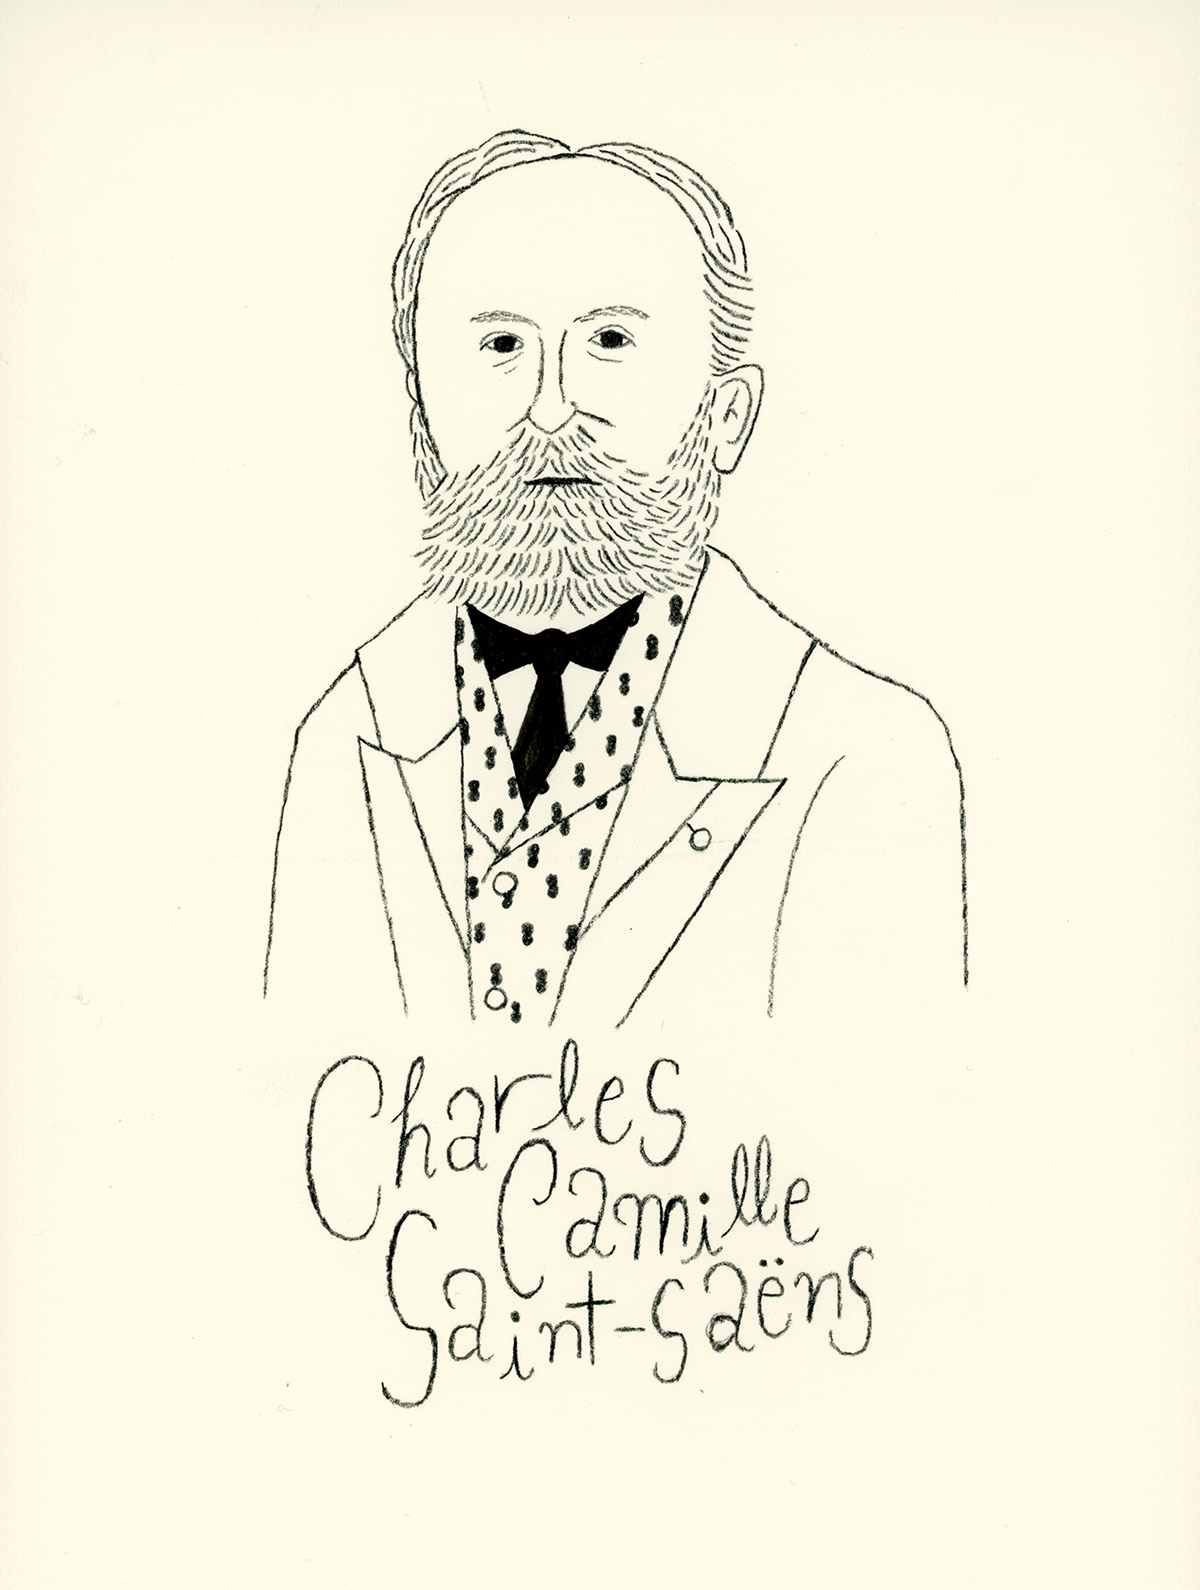 Charles
Camille
Saint-Saëns